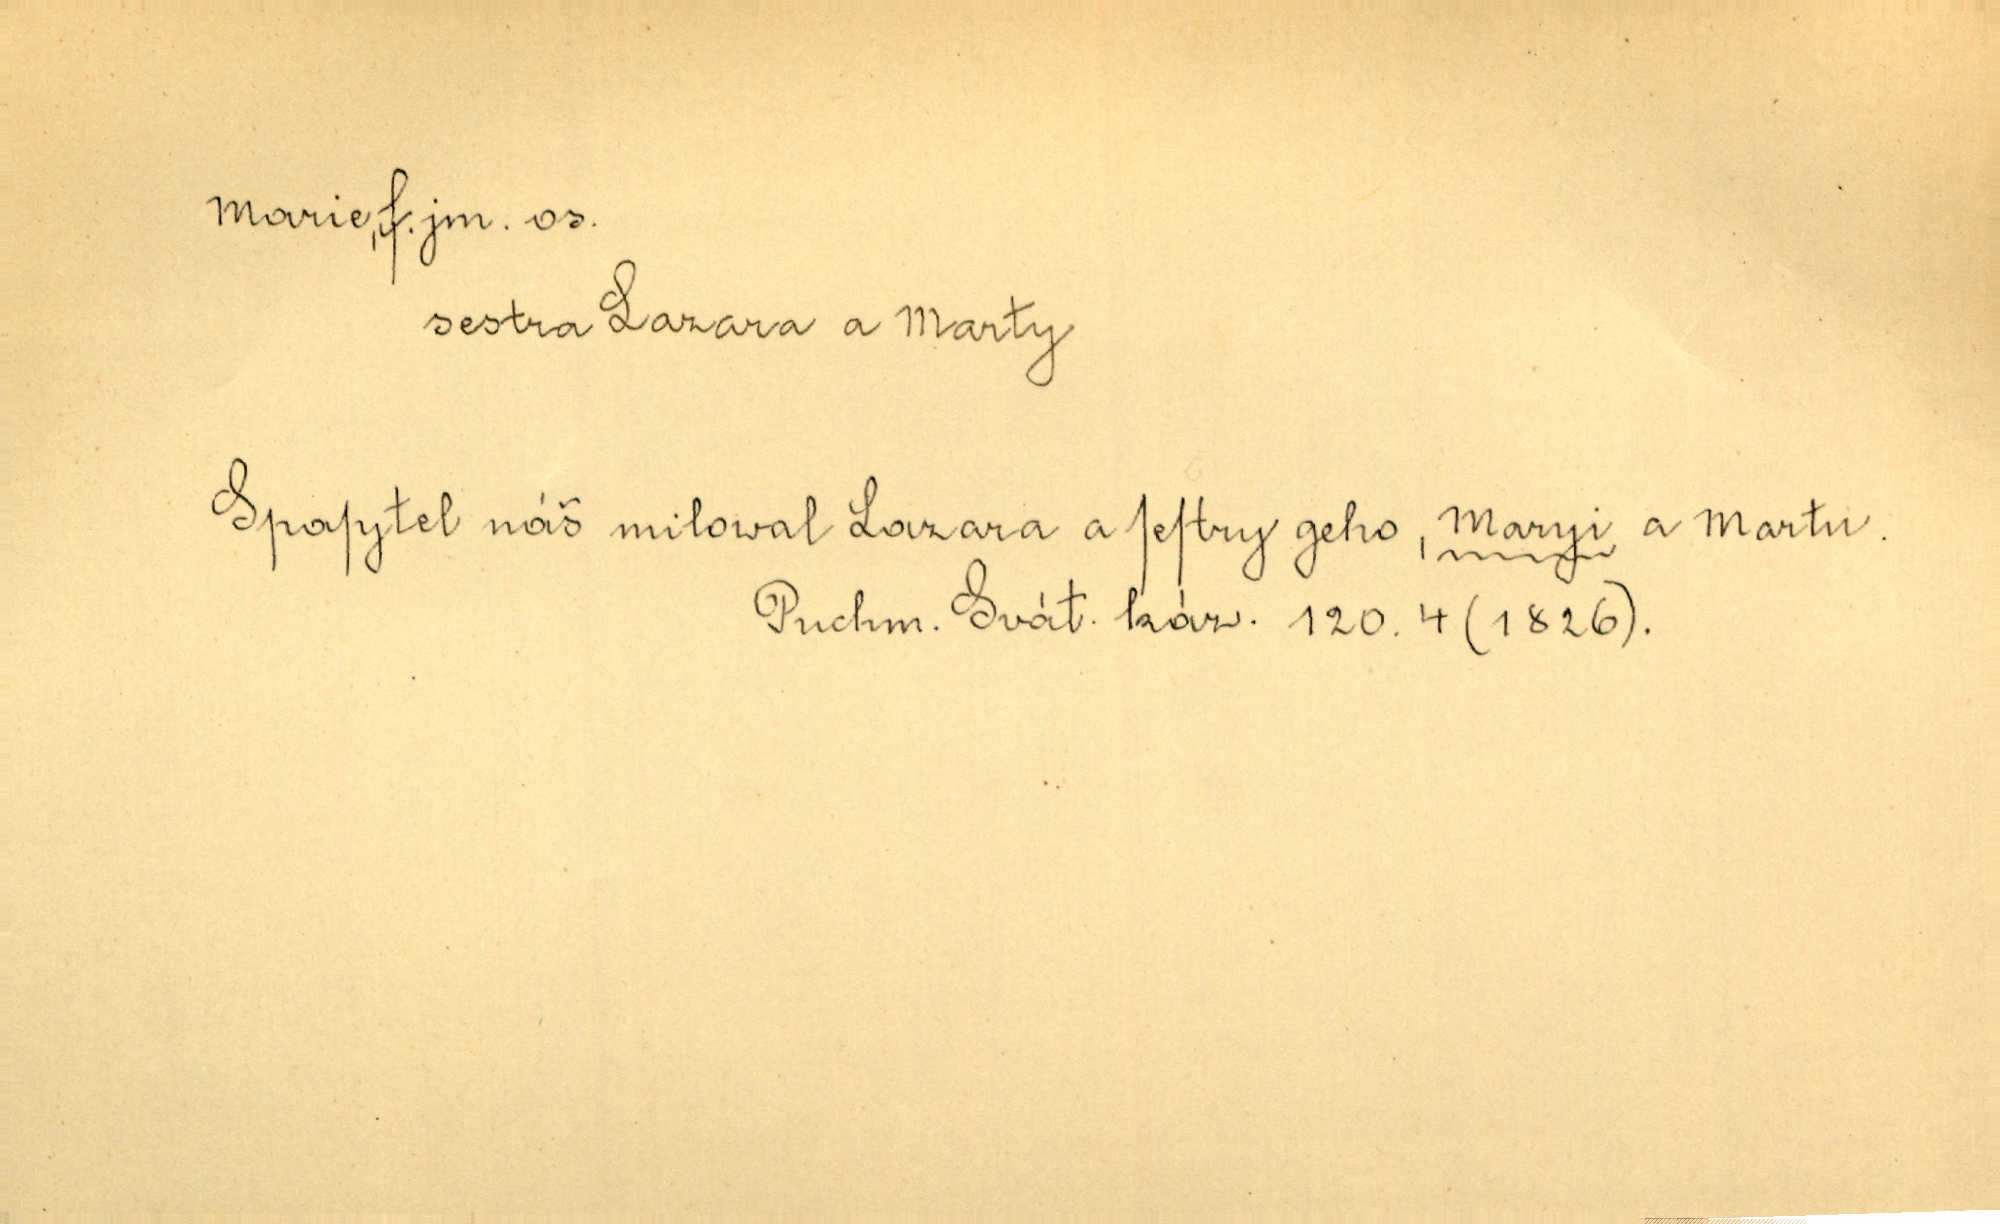 Marie, f. jm. os.
sestra Lazara a Marty
Spaſytel náš milowal Lazara a ſeſtry geho, Maryi a Martu.
Puchm. Svát. káz. 120. 4 (1826).